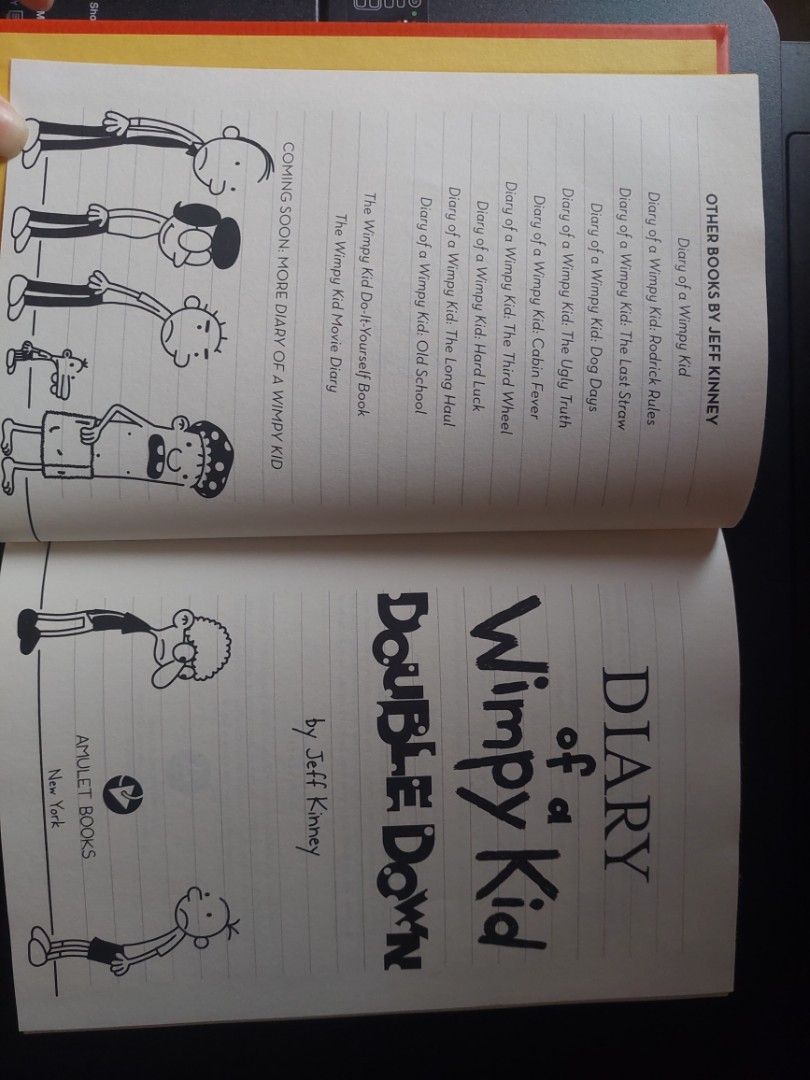 OTHER BOOKS BY JEFF KINNEY
Diary of a Wimpy Kid
Diary of a Wimpy Kid: Rodrick Rules
Diary of a Wimpy Kid: The Last Straw
Diary of a Wimpy Kid: Dog Days
Diary of a Wimpy Kid: The Ugly Truth
Diary of a Wimpy Kid: Cabin Fever
Diary of a Wimpy Kid: The Third Wheel
Diary of a Wimpy Kid: Hard Luck
Diary of a Wimpy Kid: The Long Haul
Diary of a Wimpy Kid: Old School
The Wimpy Kid Do-It-Yourself Book
The Wimpy Kid Movie Diary
COMING SOON: MORE DIARY OF A WIMPY KID
DIARY
of a
Wimpy Kid
DOUBLE DOWN
by Jeff Kinney
AMULET BOOKS
New York